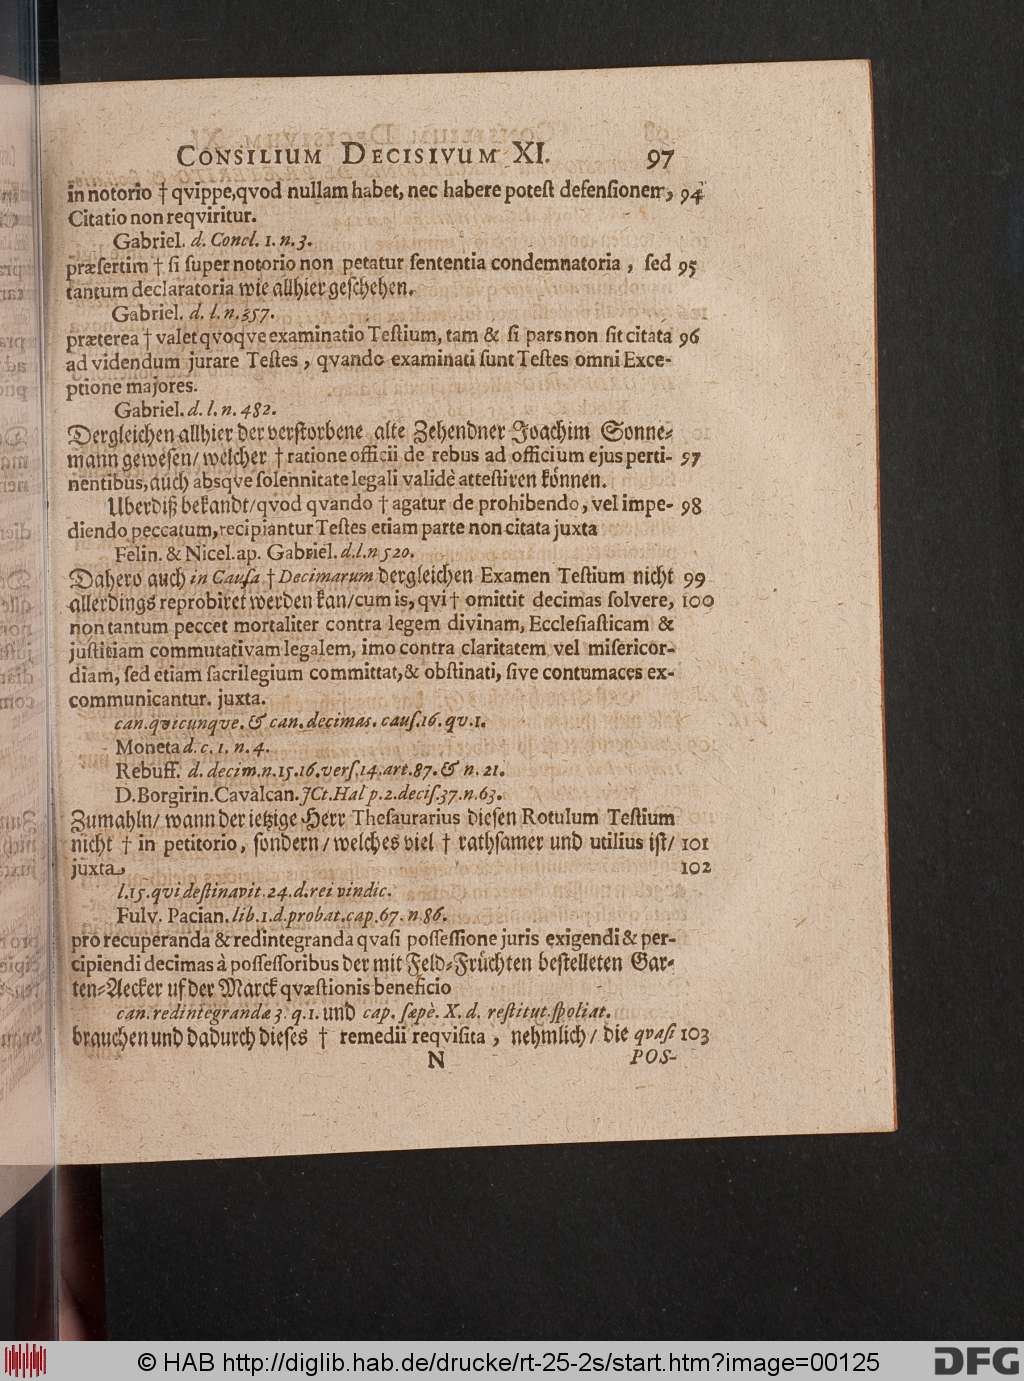 CONSILIUM DECISIVUM XI. 97
in notorio † qvippe, qvod nullam habet, nec habere potest defensionem, 94
Citatio non reqviritur.
Gabriel. d. Concl. 1. n. 3.
præsertim † si super notorio non petatur sententia condemnatoria, sed 95
tantum declaratoria wie allhier geschehen.
Gabriel. d. l. n. 357.
præterea † valet qvoqve examinatio Testium, tam & si pars non sit citata 96
ad videndum jurare Testes, qvando examinati sunt Testes omni Exce-
ptione majores.
Gabriel. d. l. n. 482.
Dergleichen allhier der verstorbene alte Zehendner Joachim Sonne-
mann gewesen/ welcher † ratione officii de rebus ad officium ejus perti- 97
nentibus, auch absqve solennitate legali validè attestiren können.
Uberdiß bekandt/ qvod qvando † agatur de prohibendo, vel impe- 98
diendo peccatum, recipiantur Testes etiam parte non citata juxta
Felin. & Nicel. ap. Gabriel. d. l. n 520.
Dahero auch in Causa † Decimarum dergleichen Examen Testium nicht 99
allerdings reprobiret werden kan/ cum is, qvi † omittit decimas solvere, 100
non tantum peccet mortaliter contra legem divinam, Ecclesiasticam &
justitiam commutativam legalem, imo contra claritatem vel misericor-
diam, sed etiam sacrilegium committat, & obstinati, sive contumaces ex-
communicantur. juxta.
can. qvicunqve. & can. decimas. caus. 16. qv. 1.
Moneta d. c. 1. n. 4.
Rebuff. d. decim. n. 15. 16. vers. 14. art. 87. & n. 21.
D. Borgirin. Cavalcan. JCt. Hal p. 2. decis. 37. n. 63.
Zumahln/ wann der ietzige Herr Thesaurarius diesen Rotulum Testium
nicht † in petitorio, sondern/ welches viel † rathsamer und utilius ist/ 101
juxta, 102
l. 15. qui destinavit. 24. d. rei vindic.
Fulv. Pacian. lib. 1. d. probat. cap. 67. n. 86.
pro recuperanda & redintegranda qvasi possessione juris exigendi & per-
cipiendi decimas à possessoribus der mit Feld-Früchten bestelleten Gar-
ten-Aecker uf der Marck qvæstionis beneficio
can. redintegrandæ 3. q. 1. und cap. sæpè. X. d. restitut. spoliat.
brauchen und dadurch dieses † remedii reqvisita, nehmlich/ die qvasi 103
N POS-
© HAB http://diglib.hab.de/drucke/rt-25-2s/start.htm?image=00125
DFG